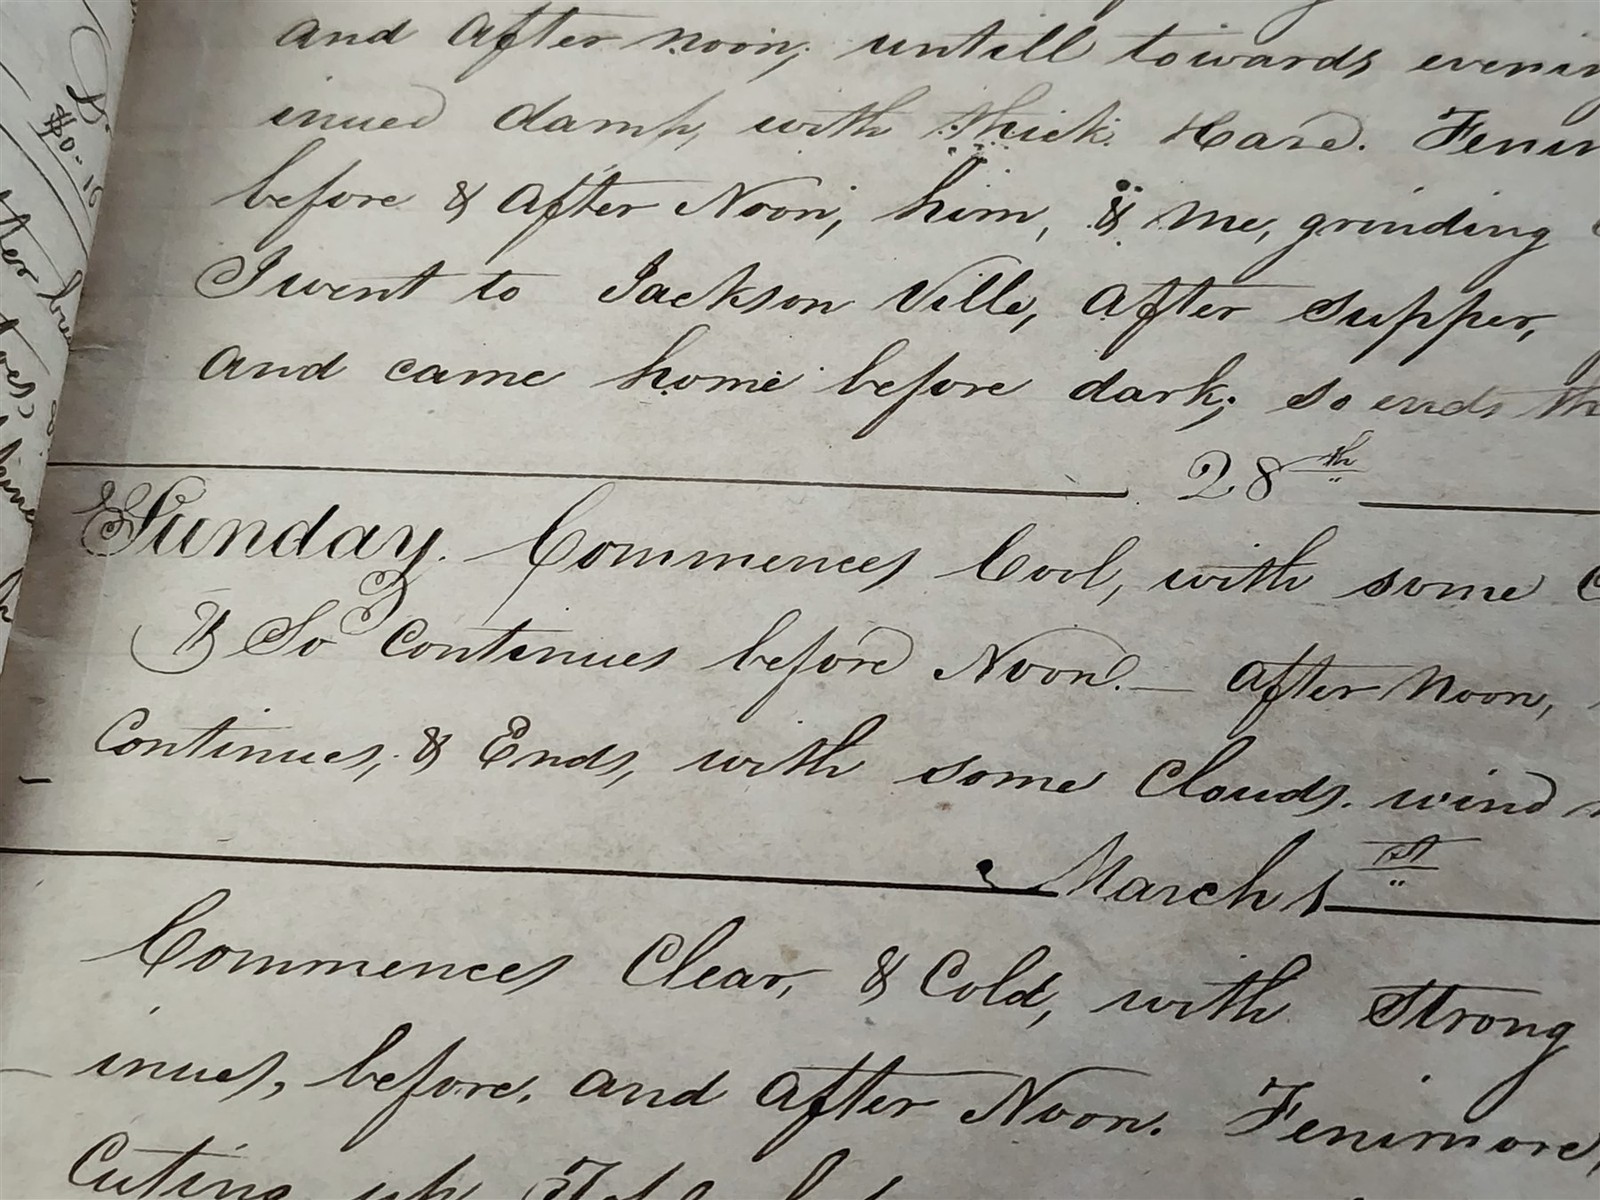 and after noon; untill towards evenin
inued damp, with thick Haze. Fenim
before & after Noon, him, & me, grinding
I went to Jackson Ville, after supper,
and came home before dark; so ends th
28th
Sunday. Commences Cool, with some C
& So Continues before Noon. — after Noon,
Continues, & Ends, with some Clouds. wind
March 1st
Commences Clear, & Cold, with strong
inues, before, and after Noon. Fenimore,
Cuting up
$0-16